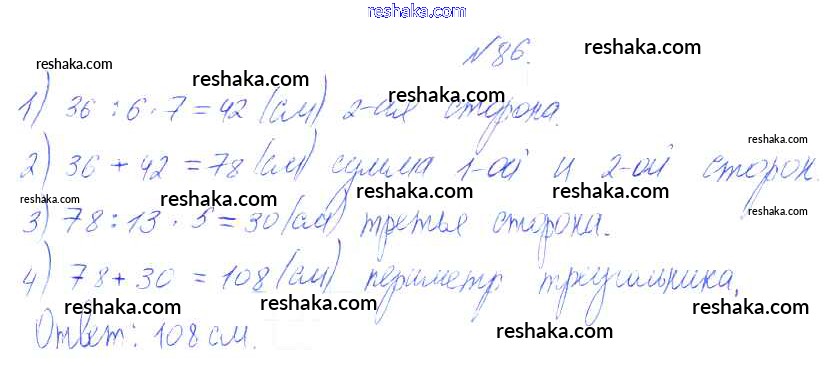 reshaka.com
№ 86. reshaka.com
reshaka.com
reshaka.com reshaka.com
1) 36 : 6 · 7 = 42 (см) 2-ая сторона.
reshaka.com
2) 36 + 42 = 78 (см) сумма 1-ой и 2-ой сторон.
reshaka.com reshaka.com reshaka.com
3) 78 : 13 · 5 = 30 (см) третья сторона.
reshaka.com
reshaka.com reshaka.com reshaka.com
4) 78 + 30 = 108 (см) периметр треугольника.
reshaka.com reshaka.com reshaka.com
Ответ: 108 см.
reshaka.com
reshaka.com